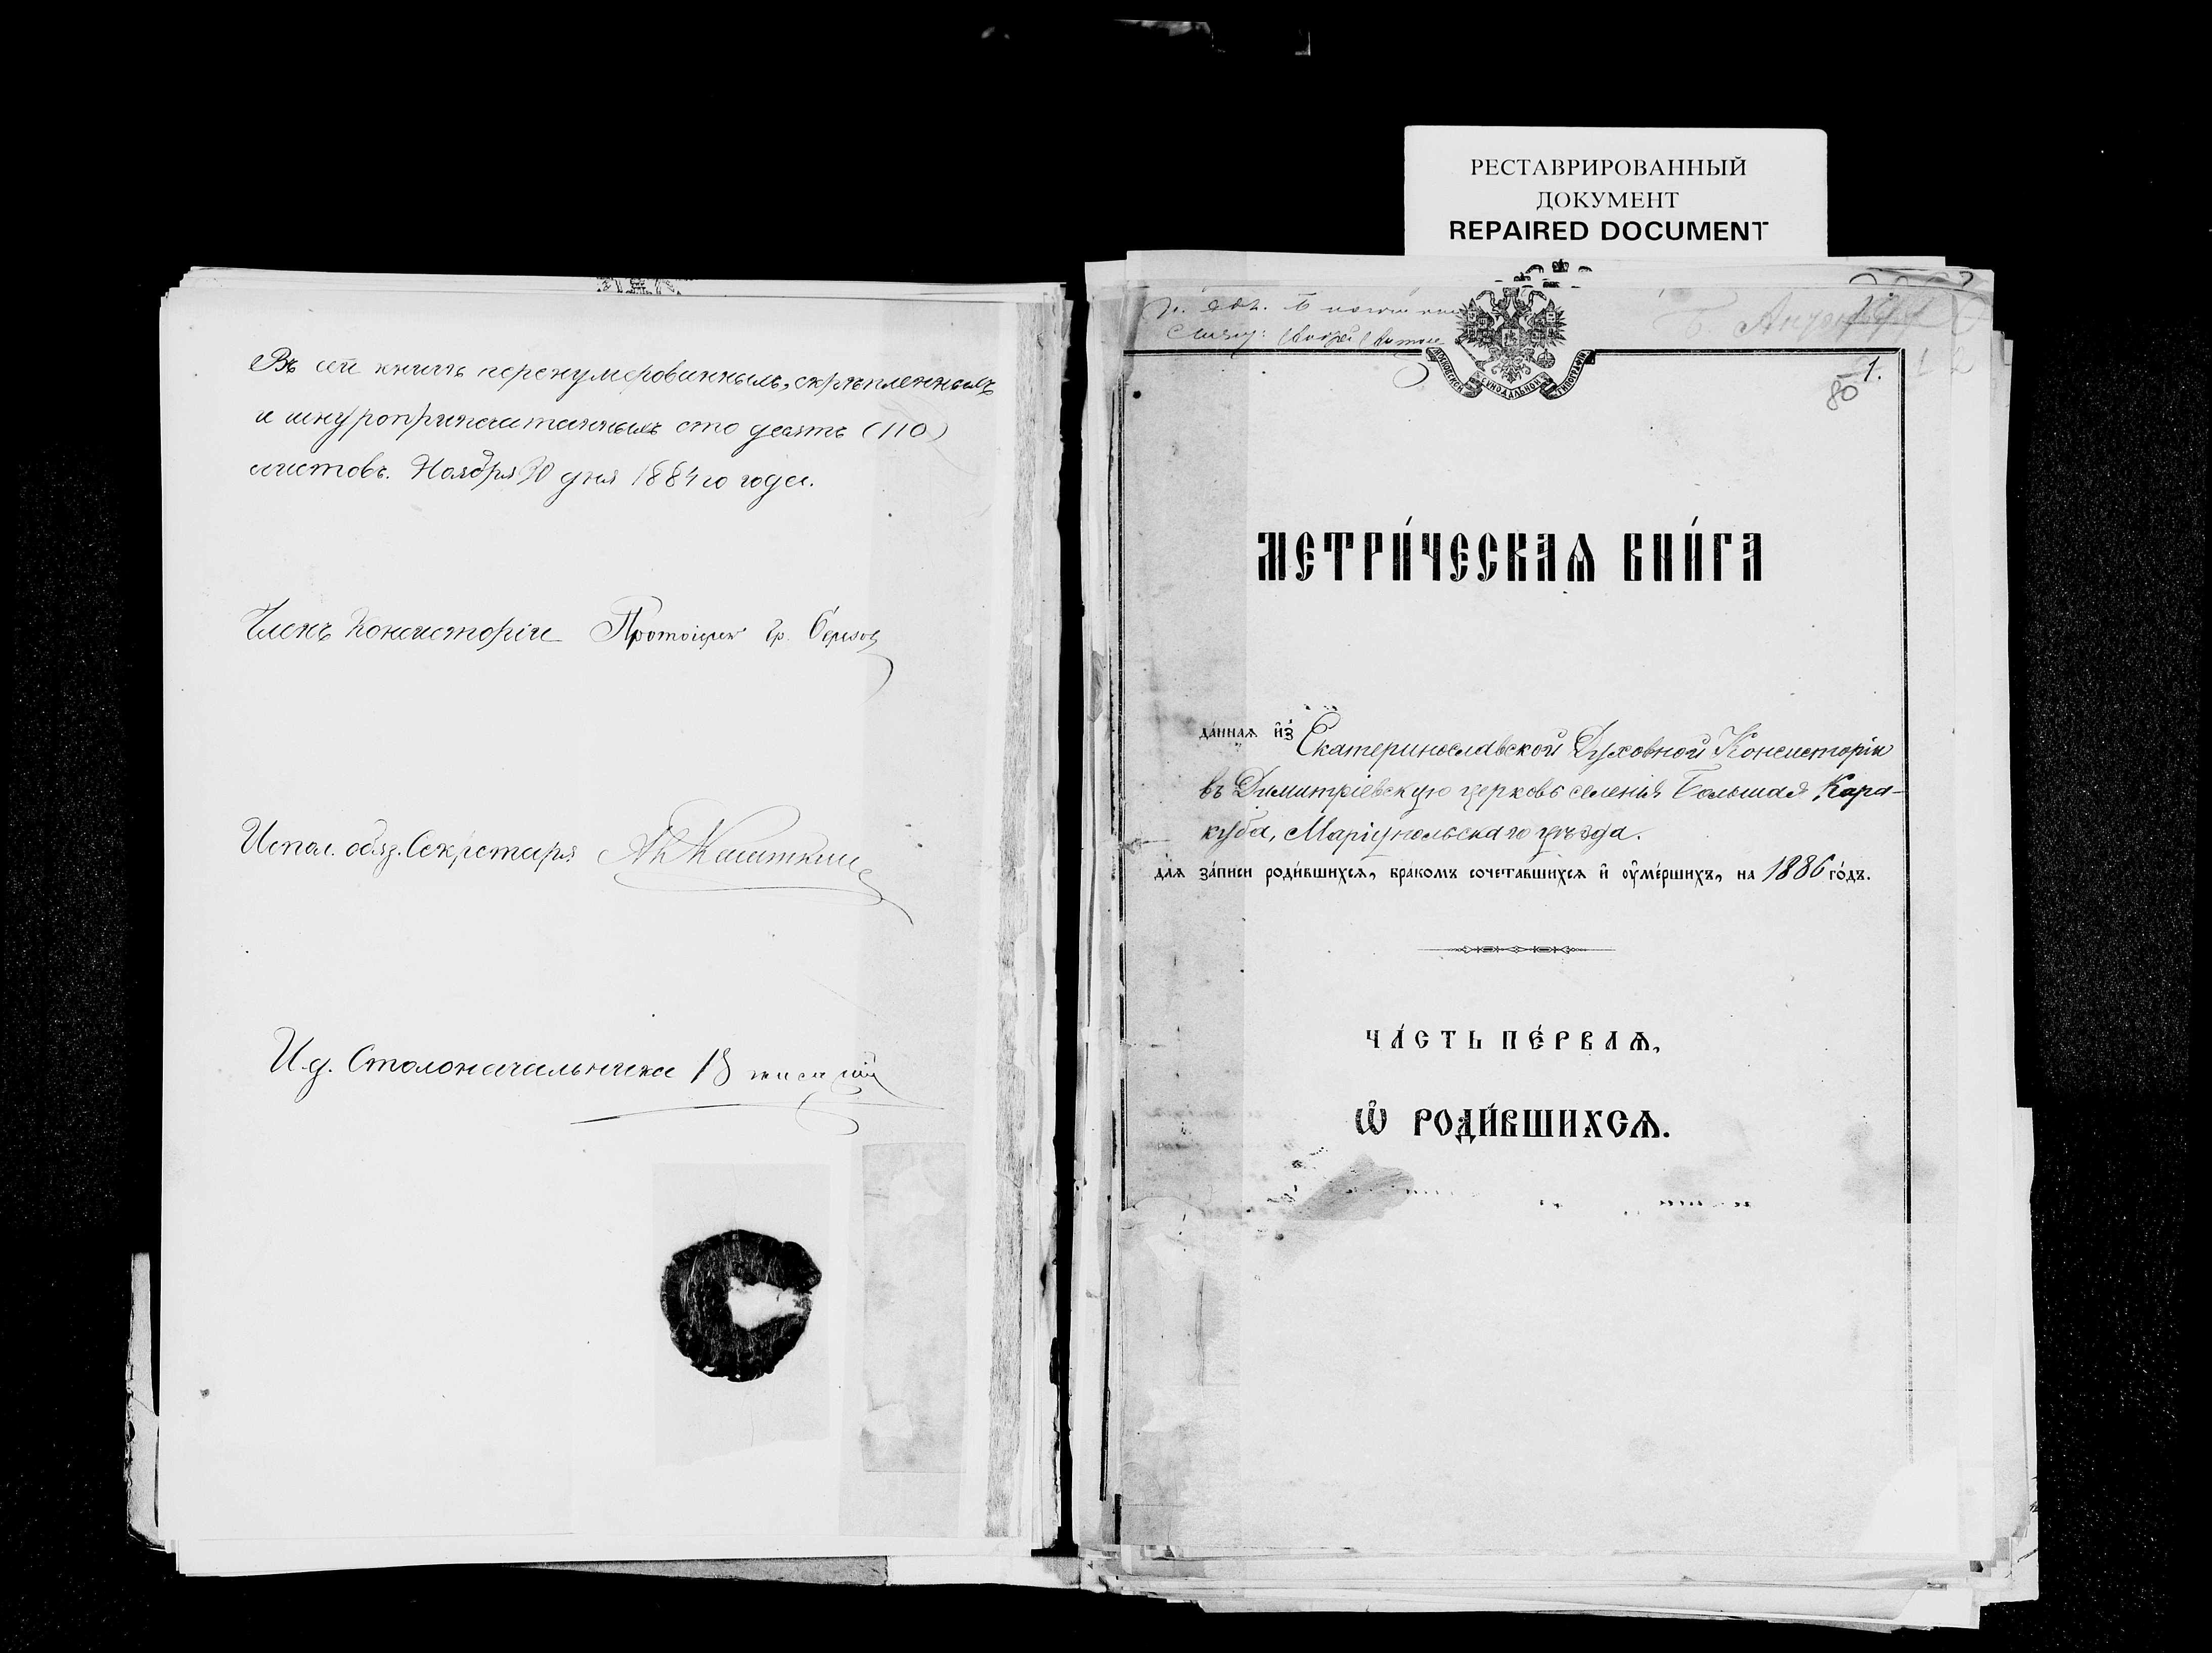 Въ сей книгѣ перенумерованныхъ, скрѣпленныхъ
и шнуроприпечатанныхъ сто десять (110)
листовъ. Ноября 30 дня 1884 го года.
Членъ Консисторіи Протоіерей Гр.
Испол. обяз. Секретаря
И. д. Столоначальника
РЕСТАВРИРОВАННЫЙ
ДОКУМЕНТ
REPAIRED DOCUMENT
1.
80
МЕТРИ́ЧЕСКАѦ КНИ́ГА
да́ннаѧ из̾ Екатеринославской Духовной Консисторіи
въ Димитріевскую церковь селенія Большая Кара-
куба, Маріупольскаго уѣзда.
длѧ за́писи роди́вшихсѧ, бра́комъ сочета́вшихсѧ и҆ ᲂу҆ме́ршихъ, на 1886 го́дъ.
ЧА́СТЬ ПЕ́РВАѦ,
Ѡ҆ РОДИ́ВШИХСѦ.